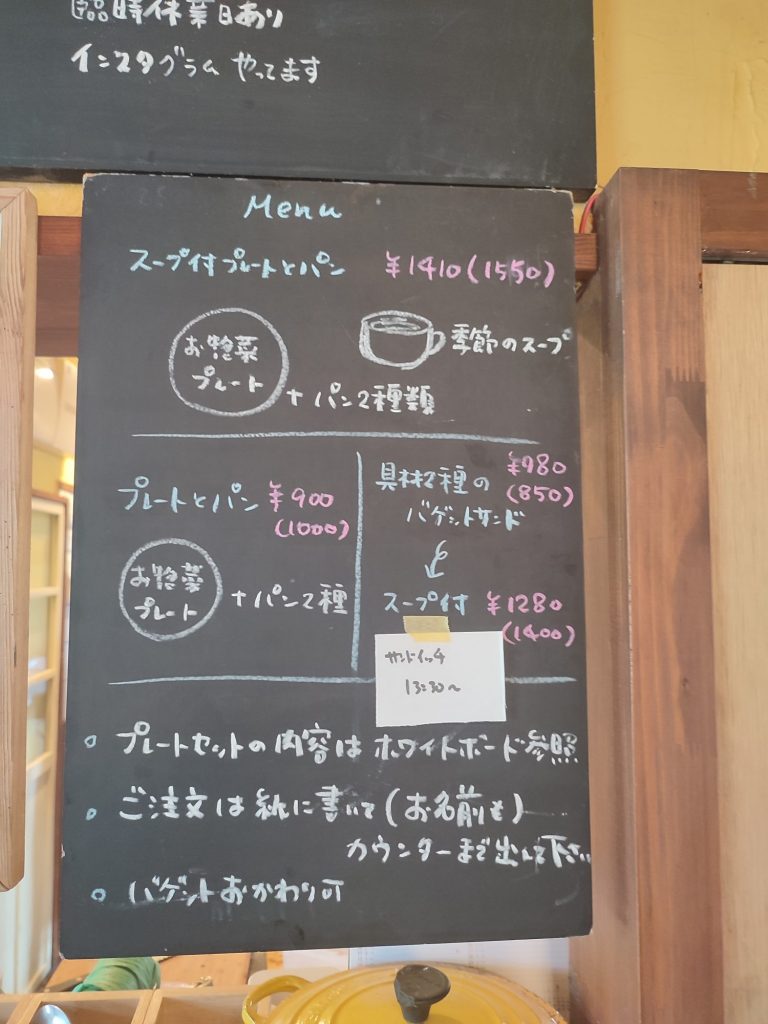 臨時休業日あり
インスタグラム やってます
Menu
スープ付プレートとパン ¥1410(1550)
お惣菜
プレート
季節のスープ
+ パン2種類
プレートとパン ¥900
(1000)
お惣菜
プレート
+ パン2種
具材2種の ¥980
(850)
バゲットサンド
スープ付 ¥1280
(1400)
サンドイッチ
13:30〜
○ プレートセットの内容は ホワイトボード参照
○ ご注文は紙に書いて(お名前も)
カウンターまで出して下さい
○ バゲットおかわり可